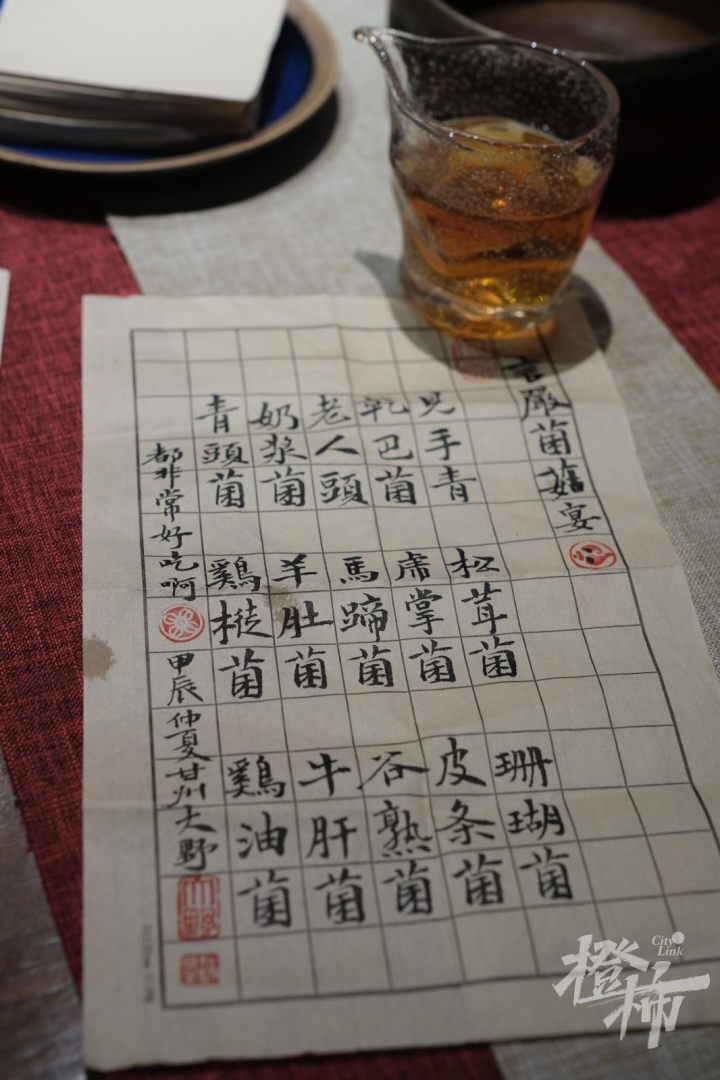 言嚴菌菇宴
见手青
乹巴菌
老人頭
奶浆菌
青頭菌
松茸菌
虎掌菌
馬蹄菌
羊肚菌
鷄樅菌
珊瑚菌
皮条菌
谷熟菌
牛肝菌
鷄油菌
都非常好吃啊
甲辰仲夏甘州大野
大野
橙柿
City
Link